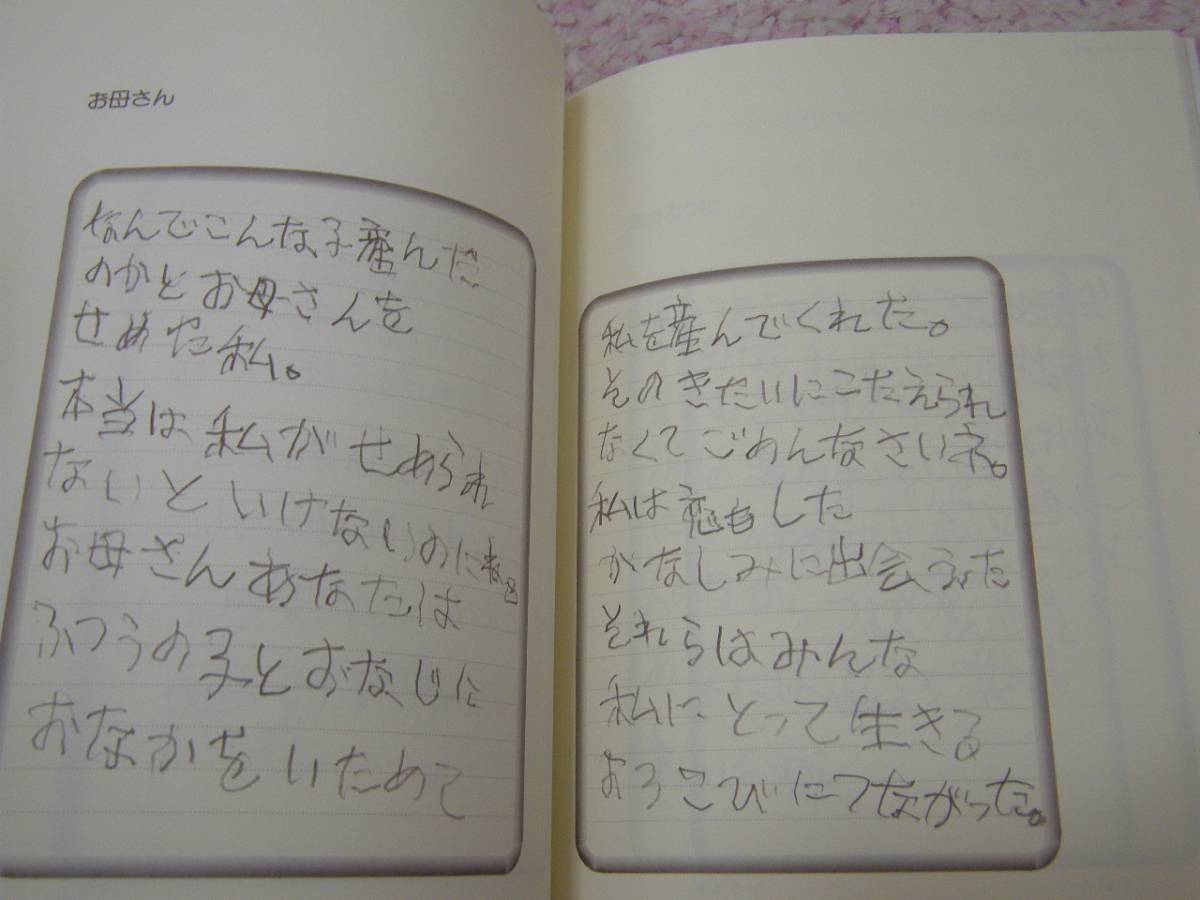 お母さん
なんでこんな子産んだ
のかとお母さんを
せめた私。
本当は私がせめられ
ないといけないのにね
お母さんあなたは
ふつうの子とおなじに
おなかをいためて
私を産んでくれた。
そのきたいにこたえられ
なくてごめんなさいネ。
私は恋もした
かなしみに出会った
それらはみんな
私にとって生きる
よろこびにつながった。